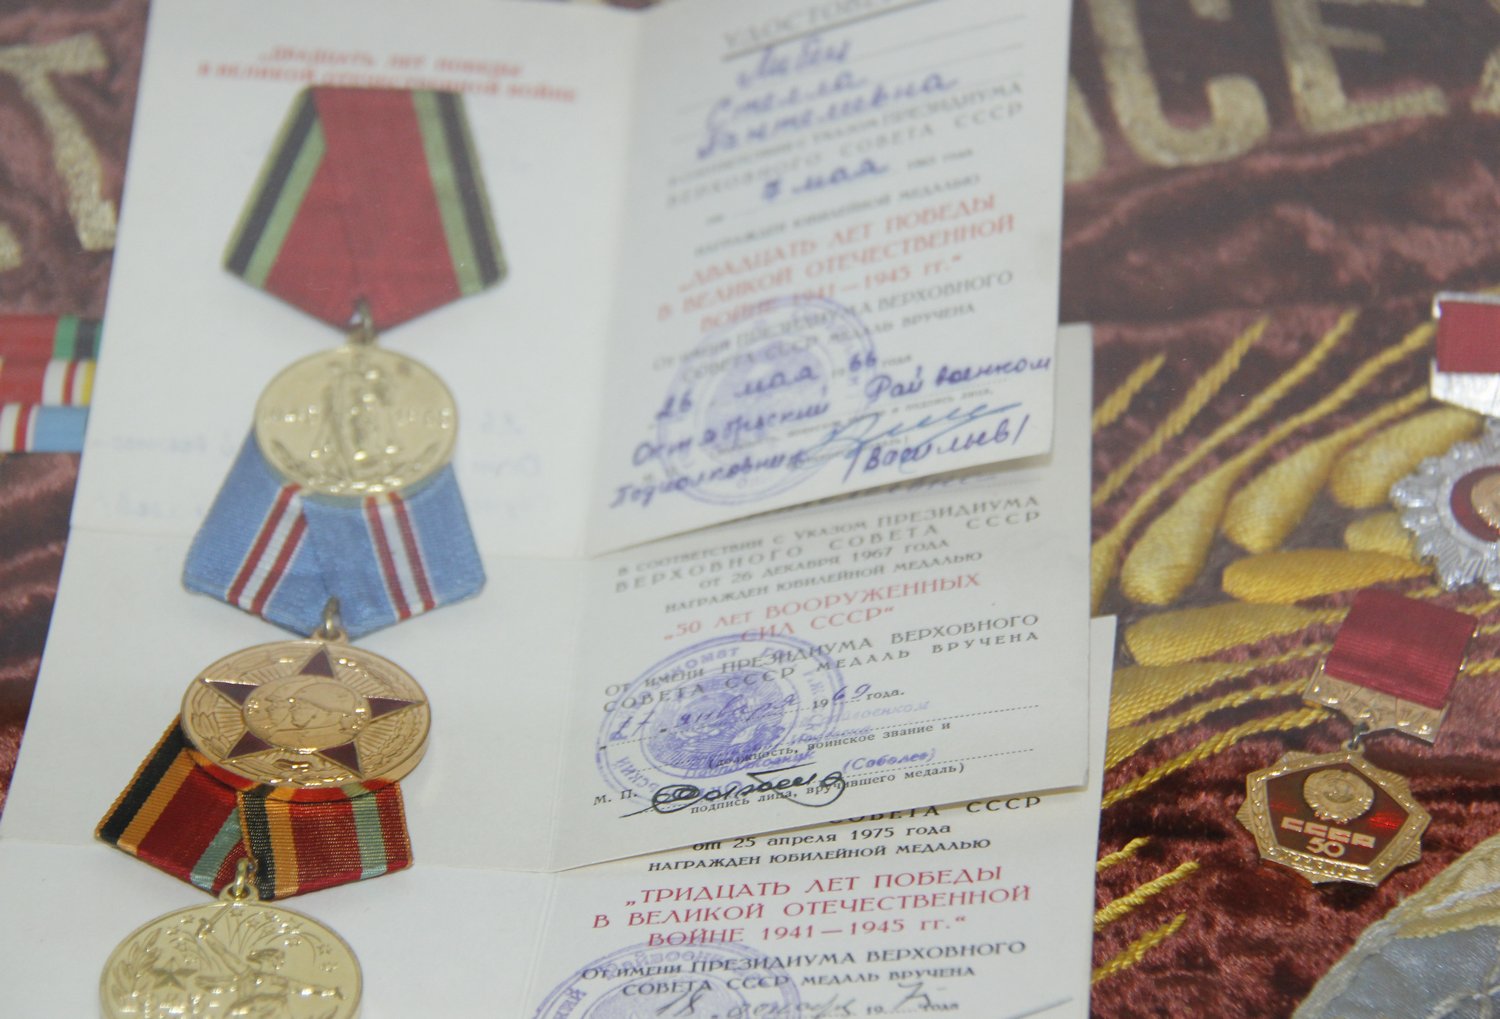 „ДВАДЦАТЬ ЛЕТ ПОБЕДЫ
В ВЕЛИКОЙ ОТЕЧЕСТВЕННОЙ ВОЙНЕ
Стелла
Пантелевна
ВЕРХОВНОГО СОВЕТА СССР
7 мая
НАГРАЖДЕН ЮБИЛЕЙНОЙ МЕДАЛЬЮ
„ДВАДЦАТЬ ЛЕТ ПОБЕДЫ
В ВЕЛИКОЙ ОТЕЧЕСТВЕННОЙ
ВОЙНЕ 1941—1945 гг.“
От имени ПРЕЗИДИУМА ВЕРХОВНОГО
СОВЕТА СССР МЕДАЛЬ ВРУЧЕНА
26 мая 1966 года
Октябрьский Райвоенком
Подполковник
/Васильев/
В СООТВЕТСТВИИ С УКАЗОМ ПРЕЗИДИУМА
ВЕРХОВНОГО СОВЕТА СССР
ОТ 26 ДЕКАБРЯ 1967 ГОДА
НАГРАЖДЕН ЮБИЛЕЙНОЙ МЕДАЛЬЮ
„50 ЛЕТ ВООРУЖЕННЫХ
СИЛ СССР“
ОТ ИМЕНИ ПРЕЗИДИУМА ВЕРХОВНОГО
СОВЕТА СССР МЕДАЛЬ ВРУЧЕНА
января 1969 года.
(должность, воинское звание и
(Соболев)
М. П.
подпись лица, вручившего медаль)
СОВЕТА СССР
от 25 апреля 1975 года
НАГРАЖДЕН ЮБИЛЕЙНОЙ МЕДАЛЬЮ
„ТРИДЦАТЬ ЛЕТ ПОБЕДЫ
В ВЕЛИКОЙ ОТЕЧЕСТВЕННОЙ
ВОЙНЕ 1941—1945 гг.“
От имени ПРЕЗИДИУМА ВЕРХОВНОГО
СОВЕТА СССР МЕДАЛЬ ВРУЧЕНА
18 1975 года
СССР
50